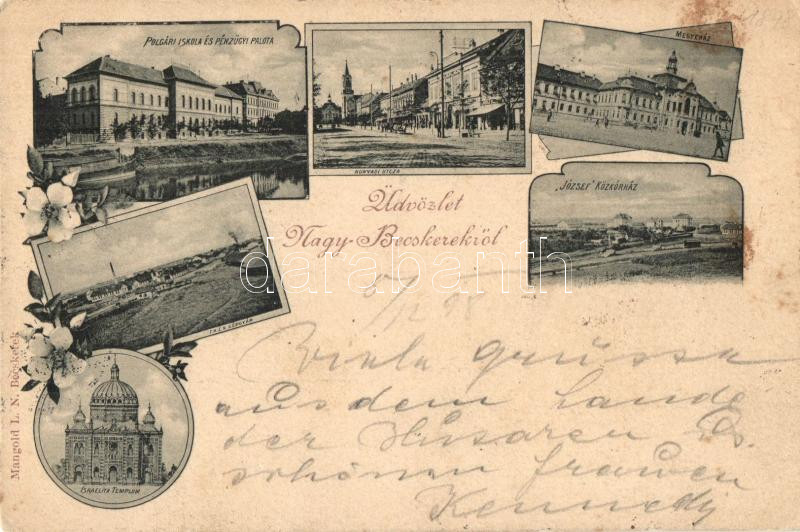 POLGÁRI ISKOLA ÉS PÉNZÜGYI PALOTA
HUNYADI UTCZA
MEGYEHÁZ
„JÓZSEF” KÖZKÓRHÁZ
Üdvözlet
Nagy-Becskerekről
darabanth
ISRAELITA TEMPLOM
Mangold L. N. Becskerek
Viele grüsse
aus dem Lande
der Husaren
schönen frauen
Kennedy